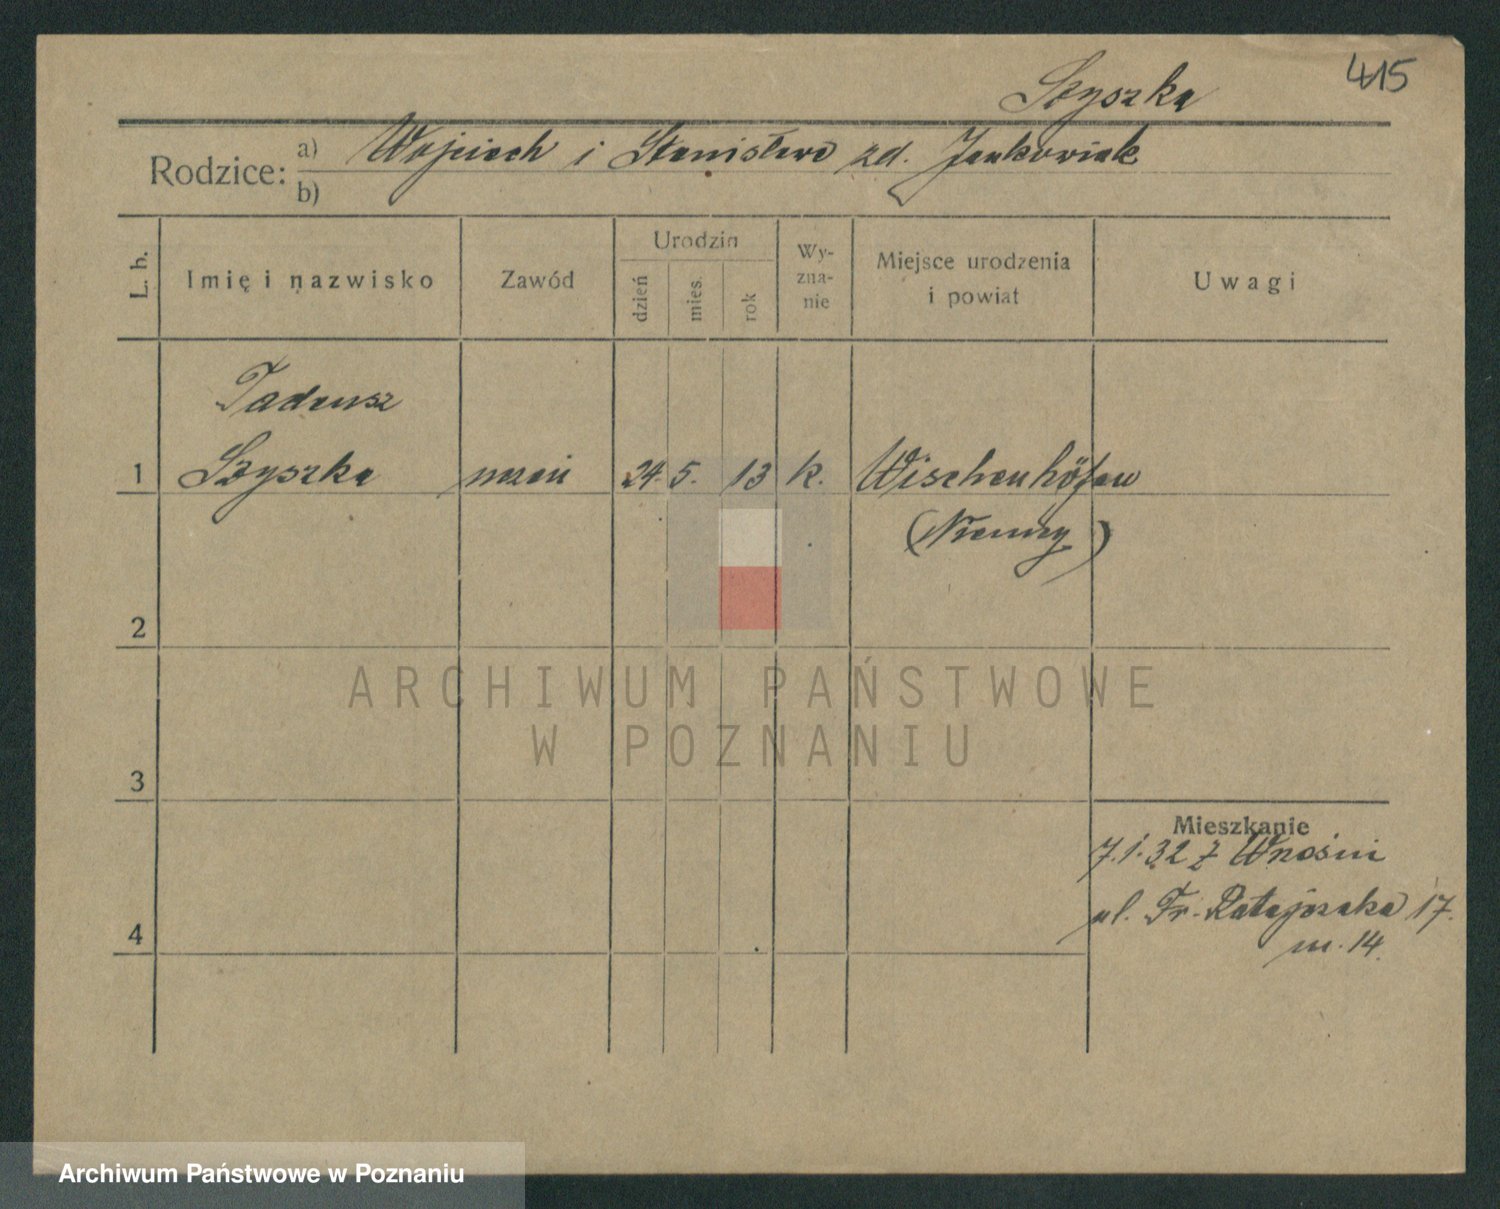 415
Szyszka
Rodzice: a) Wojciech i Stanisława zd. Jankowiak
b)
L. b.
Imię i nazwisko
Zawód
Urodzin
dzień
mies.
rok
Wy-
zna-
nie
Miejsce urodzenia
i powiat
Uwagi
Tadeusz
1 Szyszka uczeń 24. 5. 13 k. Wischenhöfen
(Niemcy)
2
3
Mieszkanie
7.1.32 z
ul. Fr. Ratajczaka 17.
m. 14.
4
ARCHIWUM PAŃSTWOWE
W POZNANIU
Archiwum Państwowe w Poznaniu